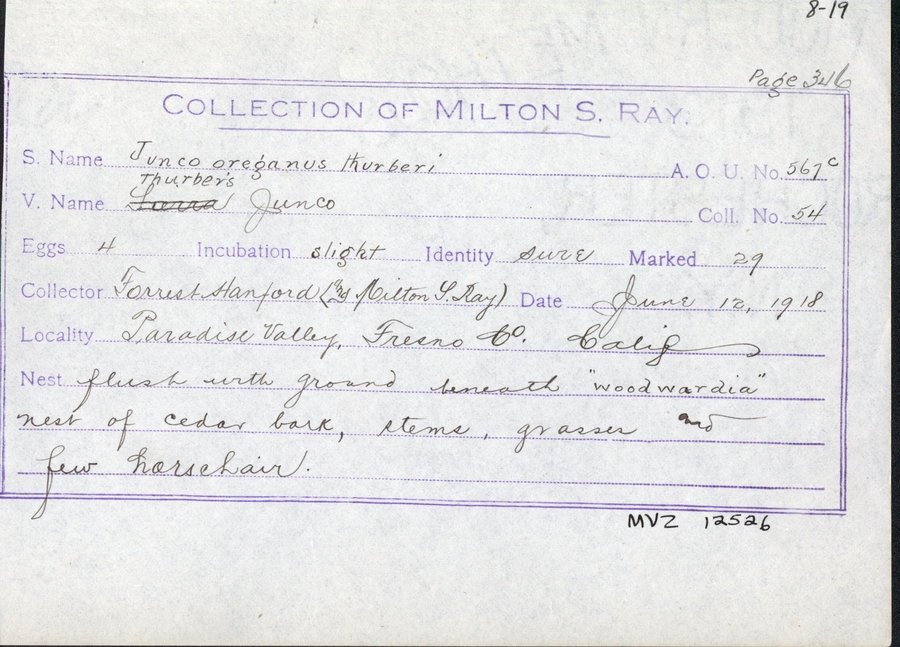 8-19
Page 346
COLLECTION OF MILTON S. RAY.
S. Name Junco oreganus thurberi A. O. U. No. 567c
Thurber's
V. Name Sierra Junco Coll. No. 54
Eggs 4 Incubation slight Identity sure Marked 29
Collector Forrest Hanford (for Milton S. Ray) Date June 12, 1918
Locality Paradise Valley, Fresno Co. Calif
Nest flush with ground beneath "woodwardia"
nest of cedar bark, stems, grasses and
few horsehair.
MVZ 12526